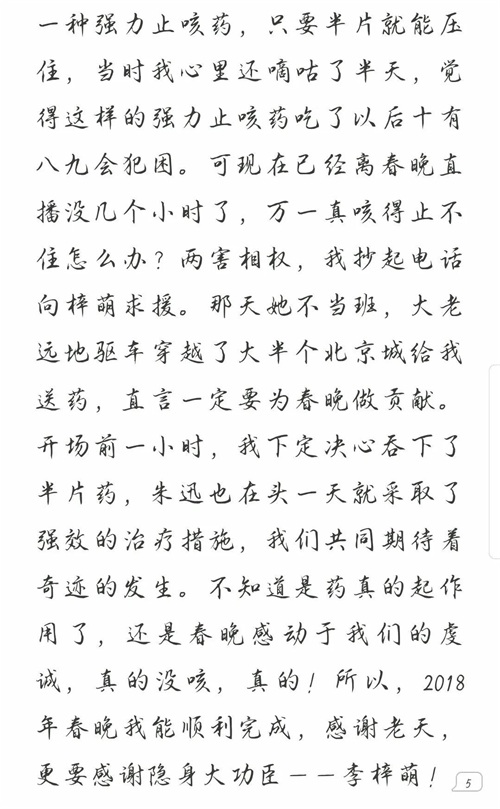 一种强力止咳药，只要半片就能压
住，当时我心里还嘀咕了半天，觉
得这样的强力止咳药吃了以后十有
八九会犯困。可现在已经离春晚直
播没几个小时了，万一真咳得止不
住怎么办？两害相权，我抄起电话
向梓萌求援。那天她不当班，大老
远地驱车穿越了大半个北京城给我
送药，直言一定要为春晚做贡献。
开场前一小时，我下定决心吞下了
半片药，朱迅也在头一天就采取了
强效的治疗措施，我们共同期待着
奇迹的发生。不知道是药真的起作
用了，还是春晚感动于我们的虔
诚，真的没咳，真的！所以，2018
年春晚我能顺利完成，感谢老天，
更要感谢隐身大功臣——李梓萌！
5